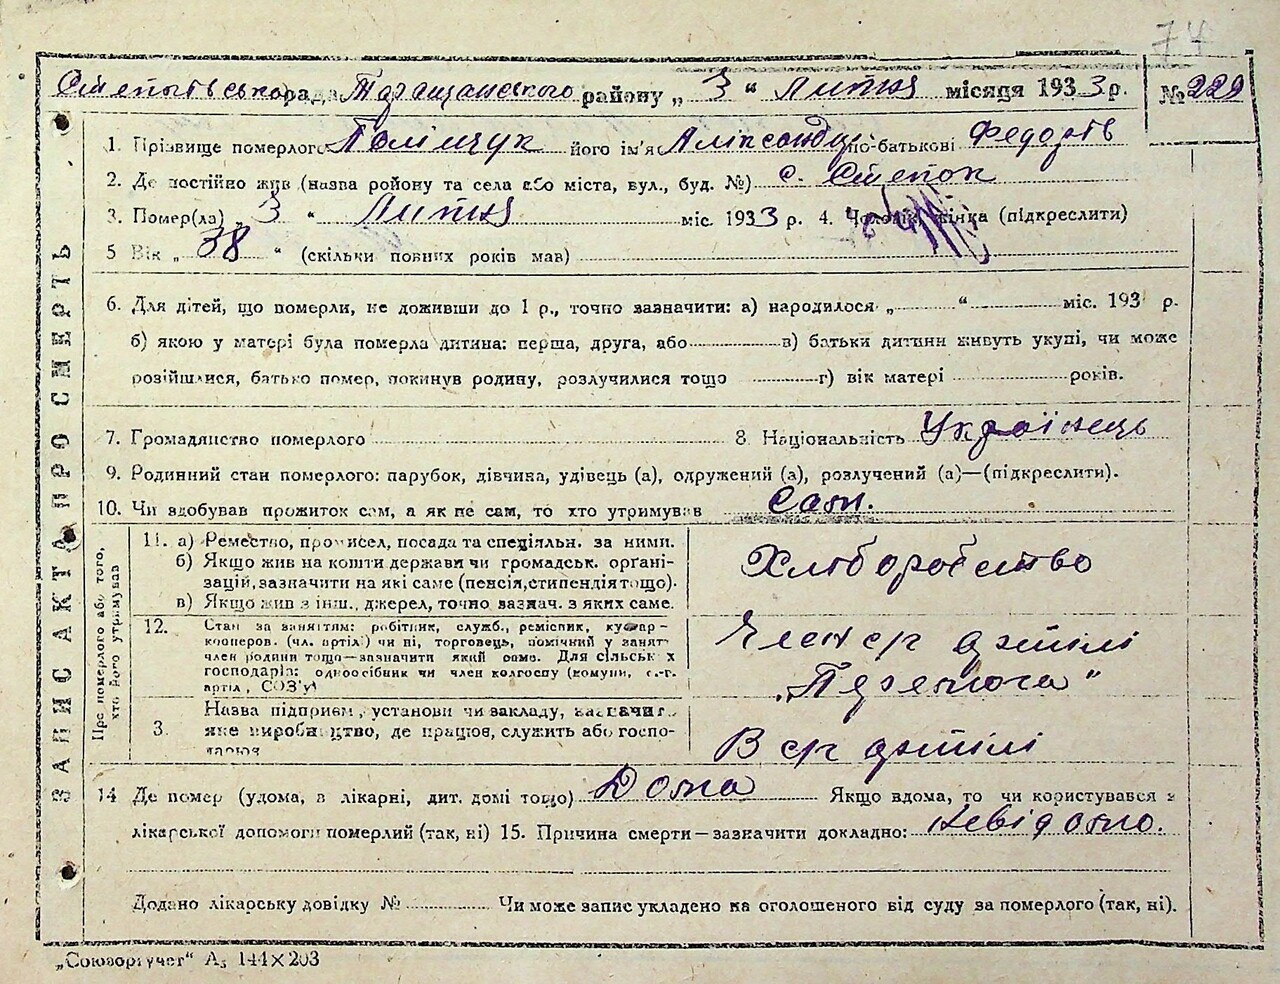 74
Степківська рада Таращанського району „ 3 “ Липня місяця 1933 р. № 229
1. Прізвище померлого Поліщук його ім'я Аліксандр по-батькові Федорів
2. Де постійно жив (назва ройону та села або міста, вул., буд. №) с. Степок
3. Помер(ла) „ 3 “ Липня міс. 1933 р. 4. Чоловік, жінка (підкреслити)
5 Вік „ 38 “ (скільки повних років мав)
6. Для дітей, що померли, не доживши до 1 р., точно зазначити: а) народилося „ “ міс. 193 р.
б) якою у матері була померла дитина: перша, друга, або в) батьки дитини живуть укупі, чи може
розійшлися, батько помер, покинув родину, розлучилися тощо г) вік матері років.
7. Громадянство померлого 8. Національність Українець
9. Родинний стан померлого: парубок, дівчина, удівець (а), одружений (а), розлучений (а)—(підкреслити).
10. Чи здобував прожиток сам, а як не сам, то хто утримував Сам.
ЗАПИС АКТА ПРО СМЕРТЬ
Про померлого або того, хто його утримував
11. а) Ремество, промисел, посада та спеціяльн. за ними.
б) Якщо жив на кошти держави чи громадськ. орґані-
зацій, зазначити на які саме (пенсія, стипендія тощо).
в) Якщо жив з інш., джерел, точно зазнач. з яких саме.
Хліборобство
12. Стан за заняттям: робітник, служб., реміспик, кустар-
кооперов. (чл. артілі) чи ні, торговець, помічний у занят.
член родини тощо—зазначити який само. Для сільськ х
господарів: одноосібник чи член колгоспу (комуни, с.-г.
артіл, СОЗ'у)
Член с/г артілі
„Перемога“
3. Назва підприєм, установи чи закладу, зазначит.
яке виробництво, де працює, служить або госпо-
дарює
В с/г артілі
14 Де помер (удома, в лікарні, дит. домі тощо) Дома Якщо вдома, то чи користувався з
лікарської допомоги померлий (так, ні) 15. Причина смерти—зазначити докладно: невідомо.
Додано лікарську довідку № Чи може запис укладено на оголошеного від суду за померлого (так, ні).
„Союзоргучет“ А5 144×203